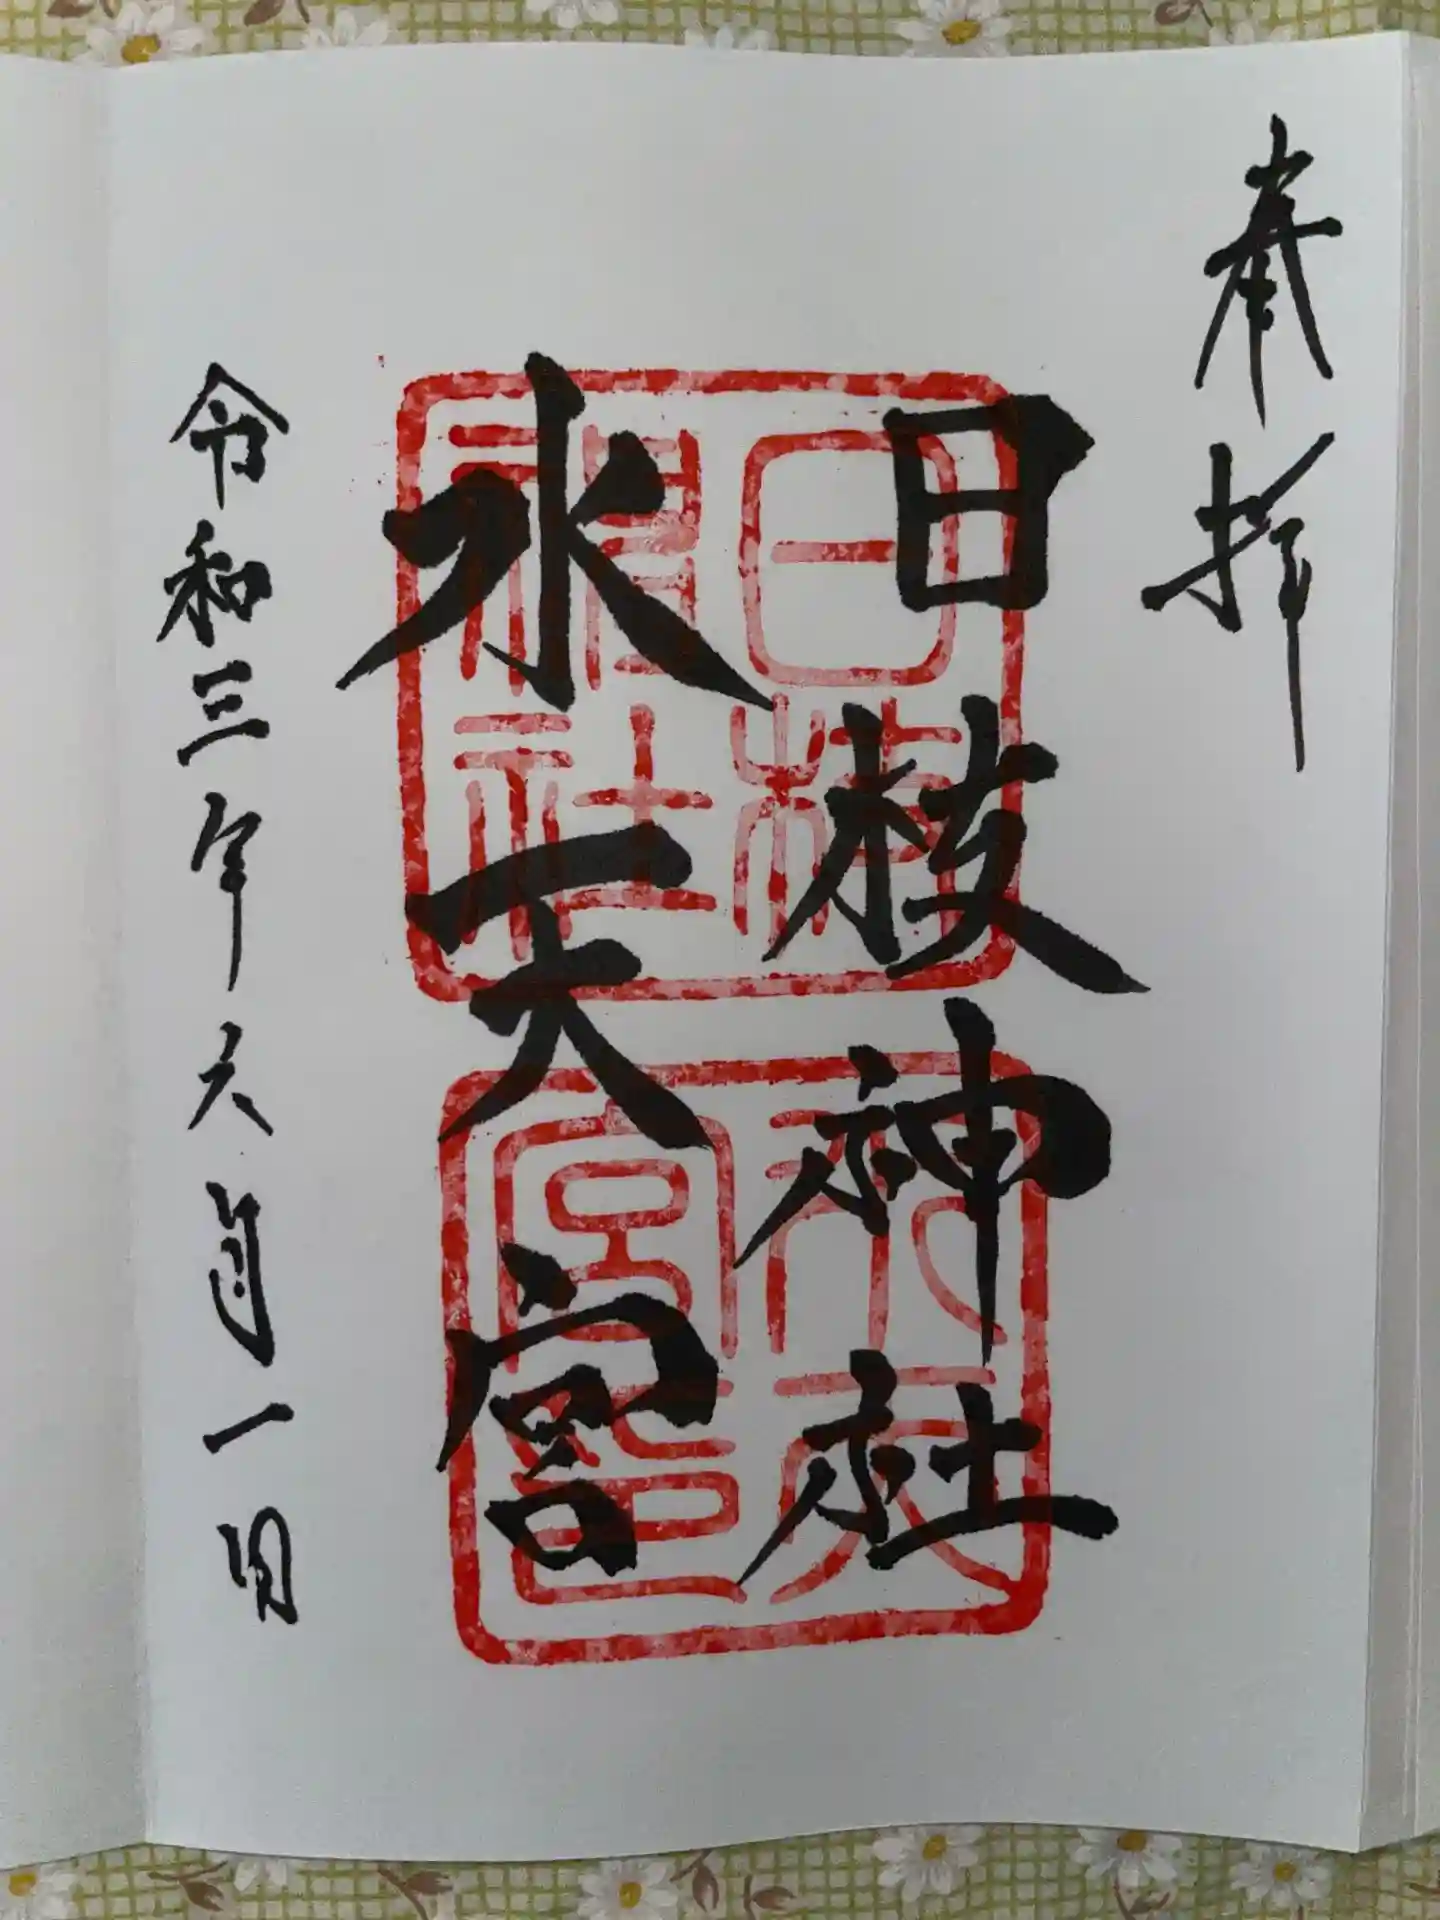 奉拝
日枝神社
水天宮
令和三年六月一日
日枝神社
水天宮印